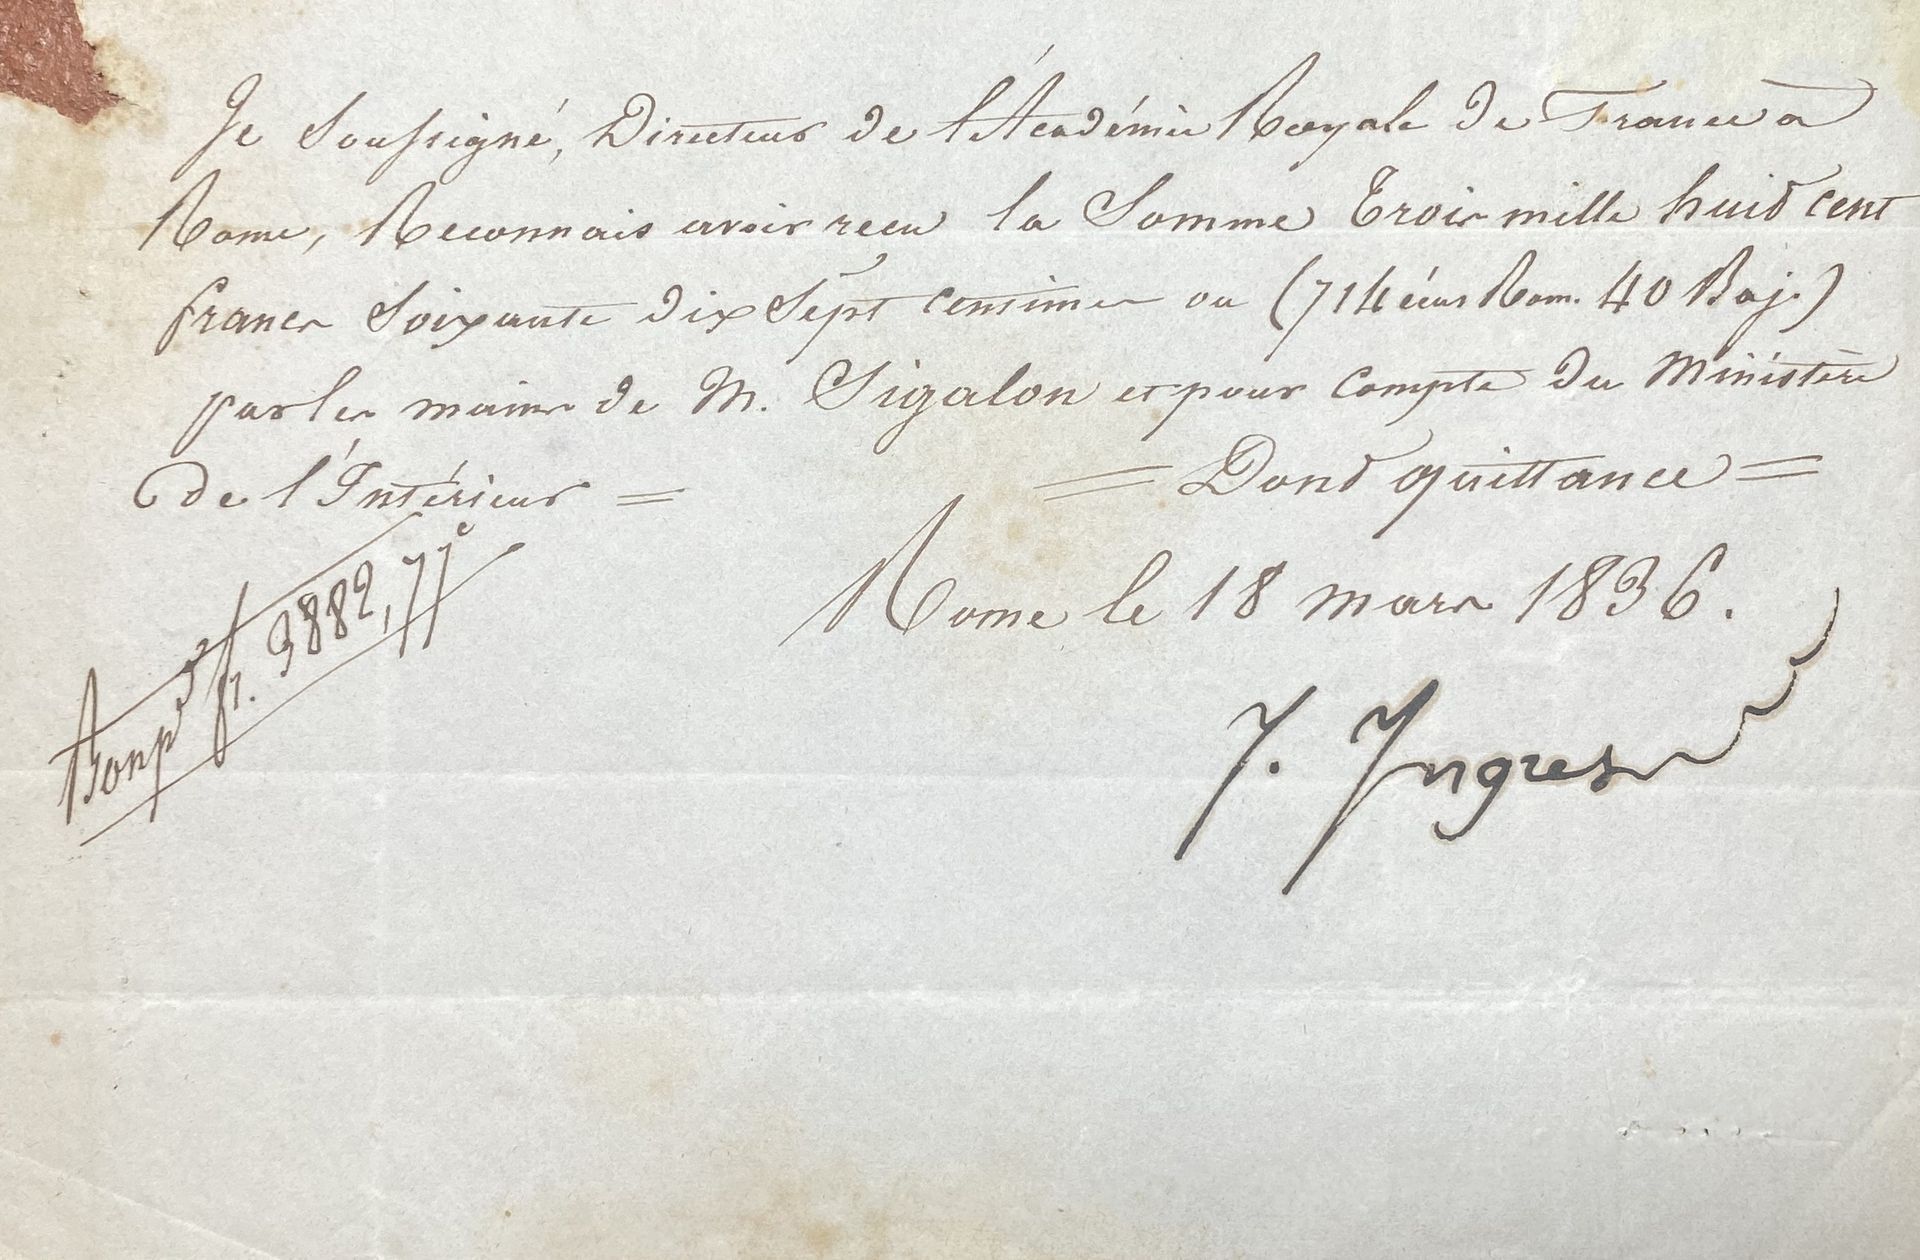 Je Soussigné, Directeur de l'Académie Royale de France à
Rome, Reconnais avoir recu la Somme Trois mille huid cent
francs Soixante dix Sept centimes ou (714 écus Rom. 40 Baj.)
par les mains de M. Sigalon et pour compte du Ministère
de l'Intérieur =
= Dond quittance =
Rome le 18 mars 1836.
Bon pr fr. 3882,77c
J. Ingres